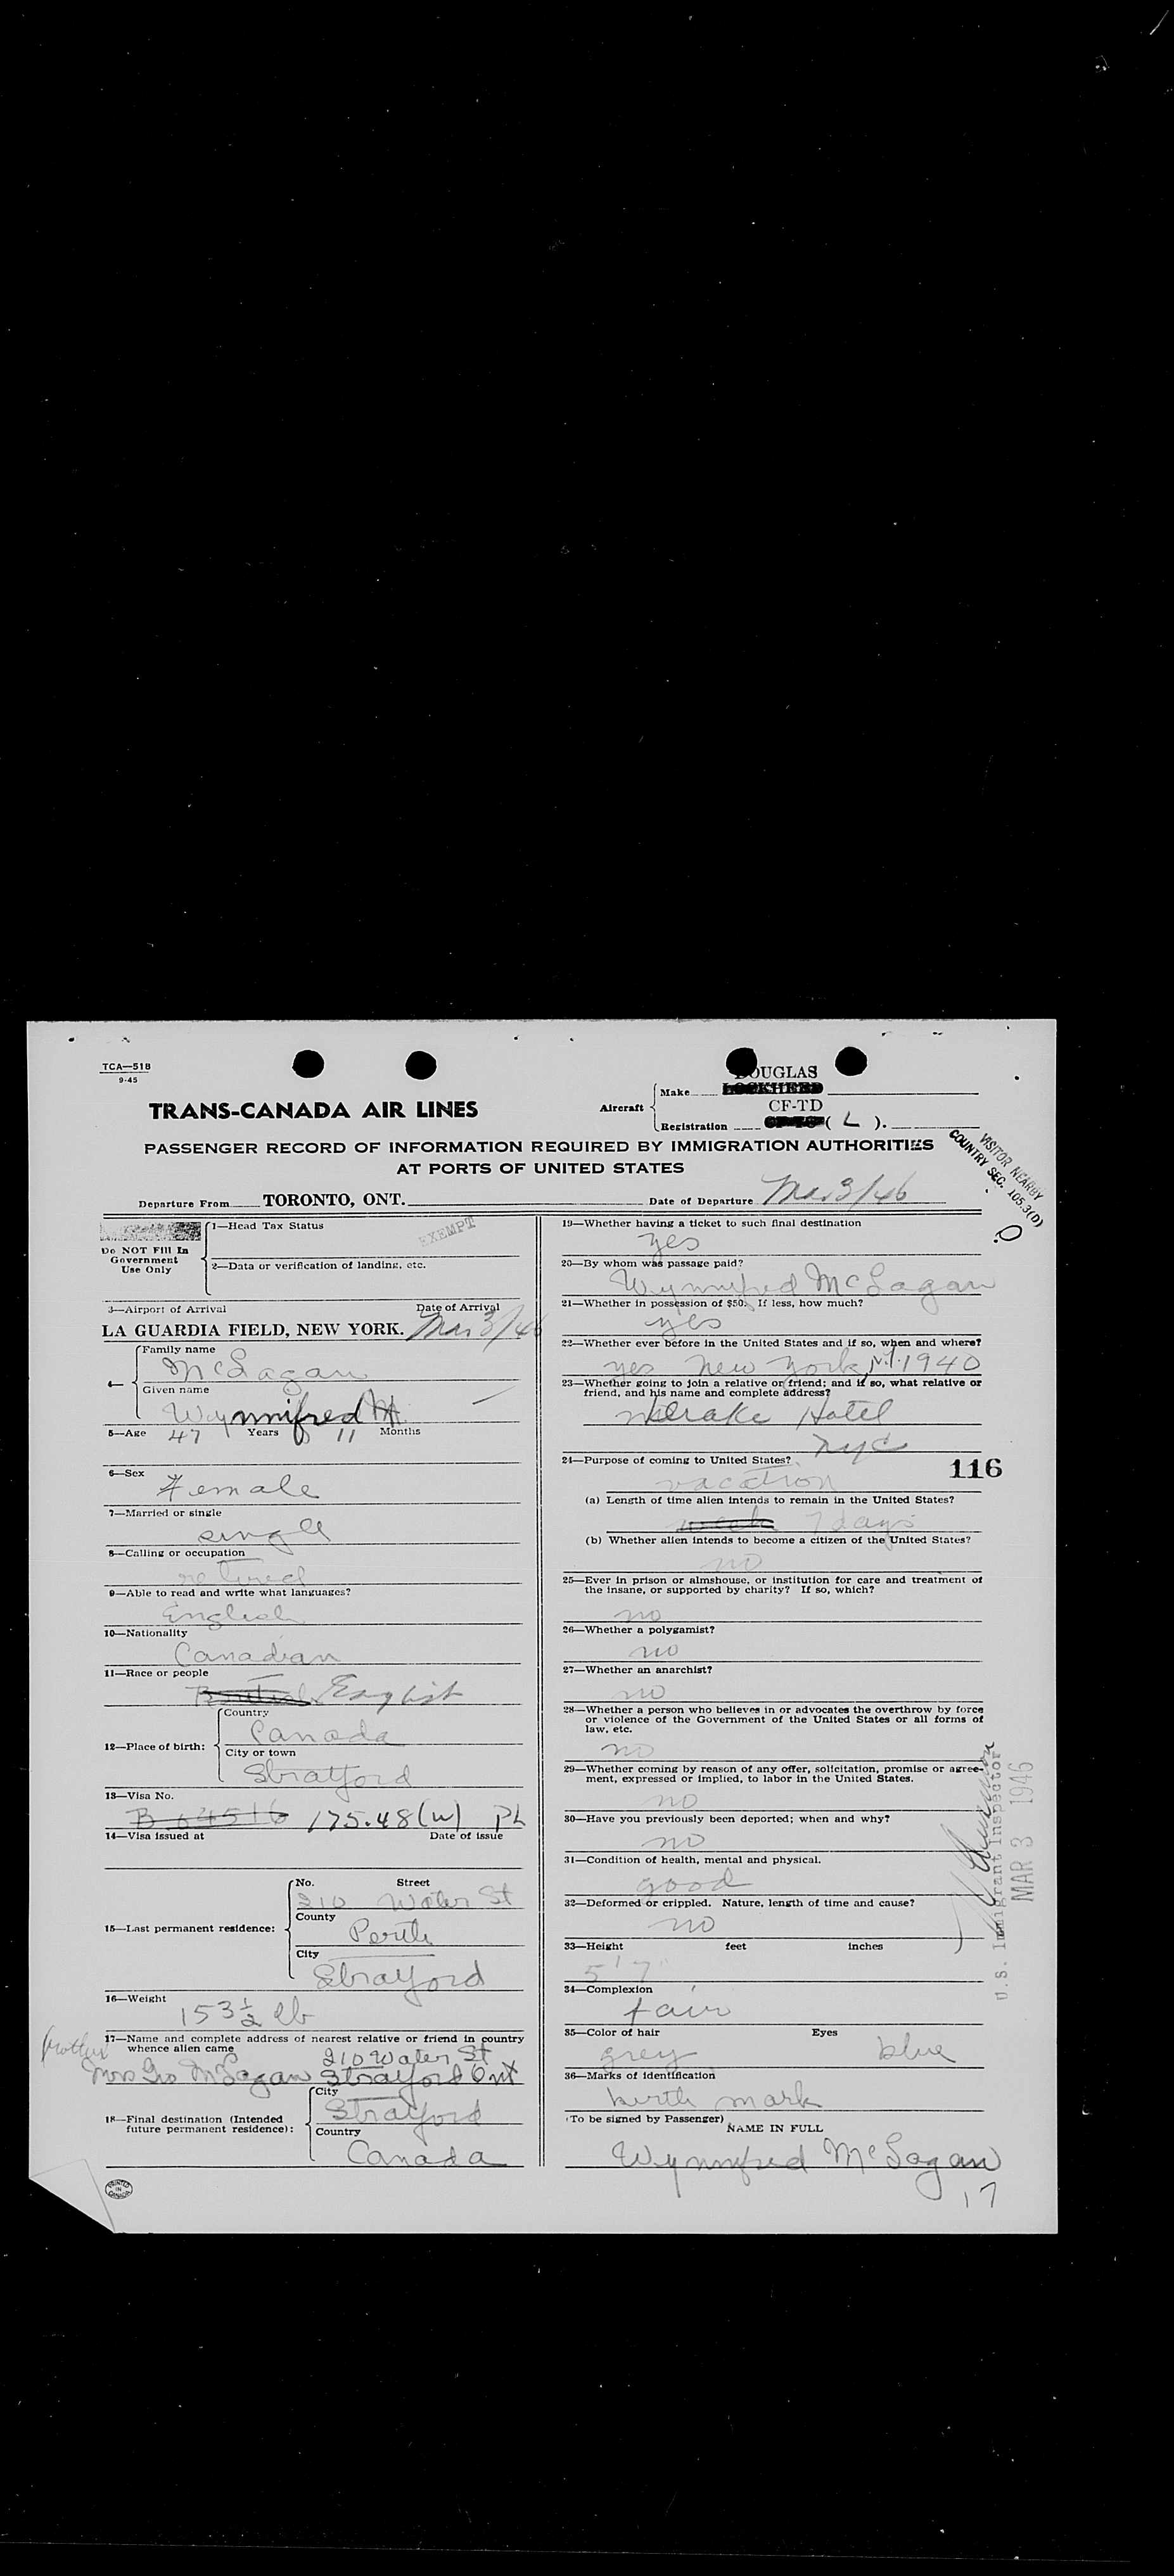 TCA—518
9-45
TRANS-CANADA AIR LINES
Aircraft
Make
DOUGLAS
LOCKHEED
CF-TD
Registration ( L ).
PASSENGER RECORD OF INFORMATION REQUIRED BY IMMIGRATION AUTHORITIES
AT PORTS OF UNITED STATES
VISITOR NEARBY
COUNTRY SEC. 105.3(D)
Departure From TORONTO, ONT. Date of Departure Mar 3/46
Do NOT Fill In
Government
Use Only
1—Head Tax Status
EXEMPT
2—Data or verification of landing, etc.
3—Airport of Arrival Date of Arrival
LA GUARDIA FIELD, NEW YORK. Mar 3/46
4—
Family name
McLagan
Given name
Wynnifred M.
5—Age 47 Years 11 Months
6—Sex
Female
7—Married or single
single
8—Calling or occupation
retired
9—Able to read and write what languages?
English
10—Nationality
Canadian
11—Race or people
English
12—Place of birth:
Country
Canada
City or town
Stratford
13—Visa No.
B 64516 175.48(w) PL
14—Visa issued at Date of issue
15—Last permanent residence:
No. Street
210 Water St
County
Perth
City
Stratford
16—Weight
153 ½ lb
17—Name and complete address of nearest relative or friend in country
whence alien came
mother
210 Water St
Mrs Geo McLagan Stratford Ont
18—Final destination (Intended
future permanent residence):
City
Stratford
Country
Canada
PRINTED
IN
CANADA
19—Whether having a ticket to such final destination
yes
20—By whom was passage paid?
Wynnifred McLagan
21—Whether in possession of $50. If less, how much?
yes
22—Whether ever before in the United States and if so, when and where?
yes New York, N.Y. 1940
23—Whether going to join a relative or friend; and if so, what relative or
friend, and his name and complete address?
Drake Hotel
NYC
24—Purpose of coming to United States?
116
vacation
(a) Length of time alien intends to remain in the United States?
week 7 days
(b) Whether alien intends to become a citizen of the United States?
no
25—Ever in prison or almshouse, or institution for care and treatment of
the insane, or supported by charity? If so, which?
no
26—Whether a polygamist?
no
27—Whether an anarchist?
no
28—Whether a person who believes in or advocates the overthrow by force
or violence of the Government of the United States or all forms of
law, etc.
no
29—Whether coming by reason of any offer, solicitation, promise or agree-
ment, expressed or implied, to labor in the United States.
no
30—Have you previously been deported; when and why?
no
31—Condition of health, mental and physical.
good
32—Deformed or crippled. Nature, length of time and cause?
no
33—Height feet inches
5' 7"
34—Complexion
fair
35—Color of hair Eyes
grey blue
36—Marks of identification
birth mark
(To be signed by Passenger)
NAME IN FULL
Wynnifred McLagan
17
U.S. Immigrant Inspector
MAR 3 1946